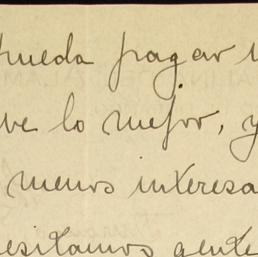 pueda pagar
ve lo mejor, y
menos interesa
esitamos gente